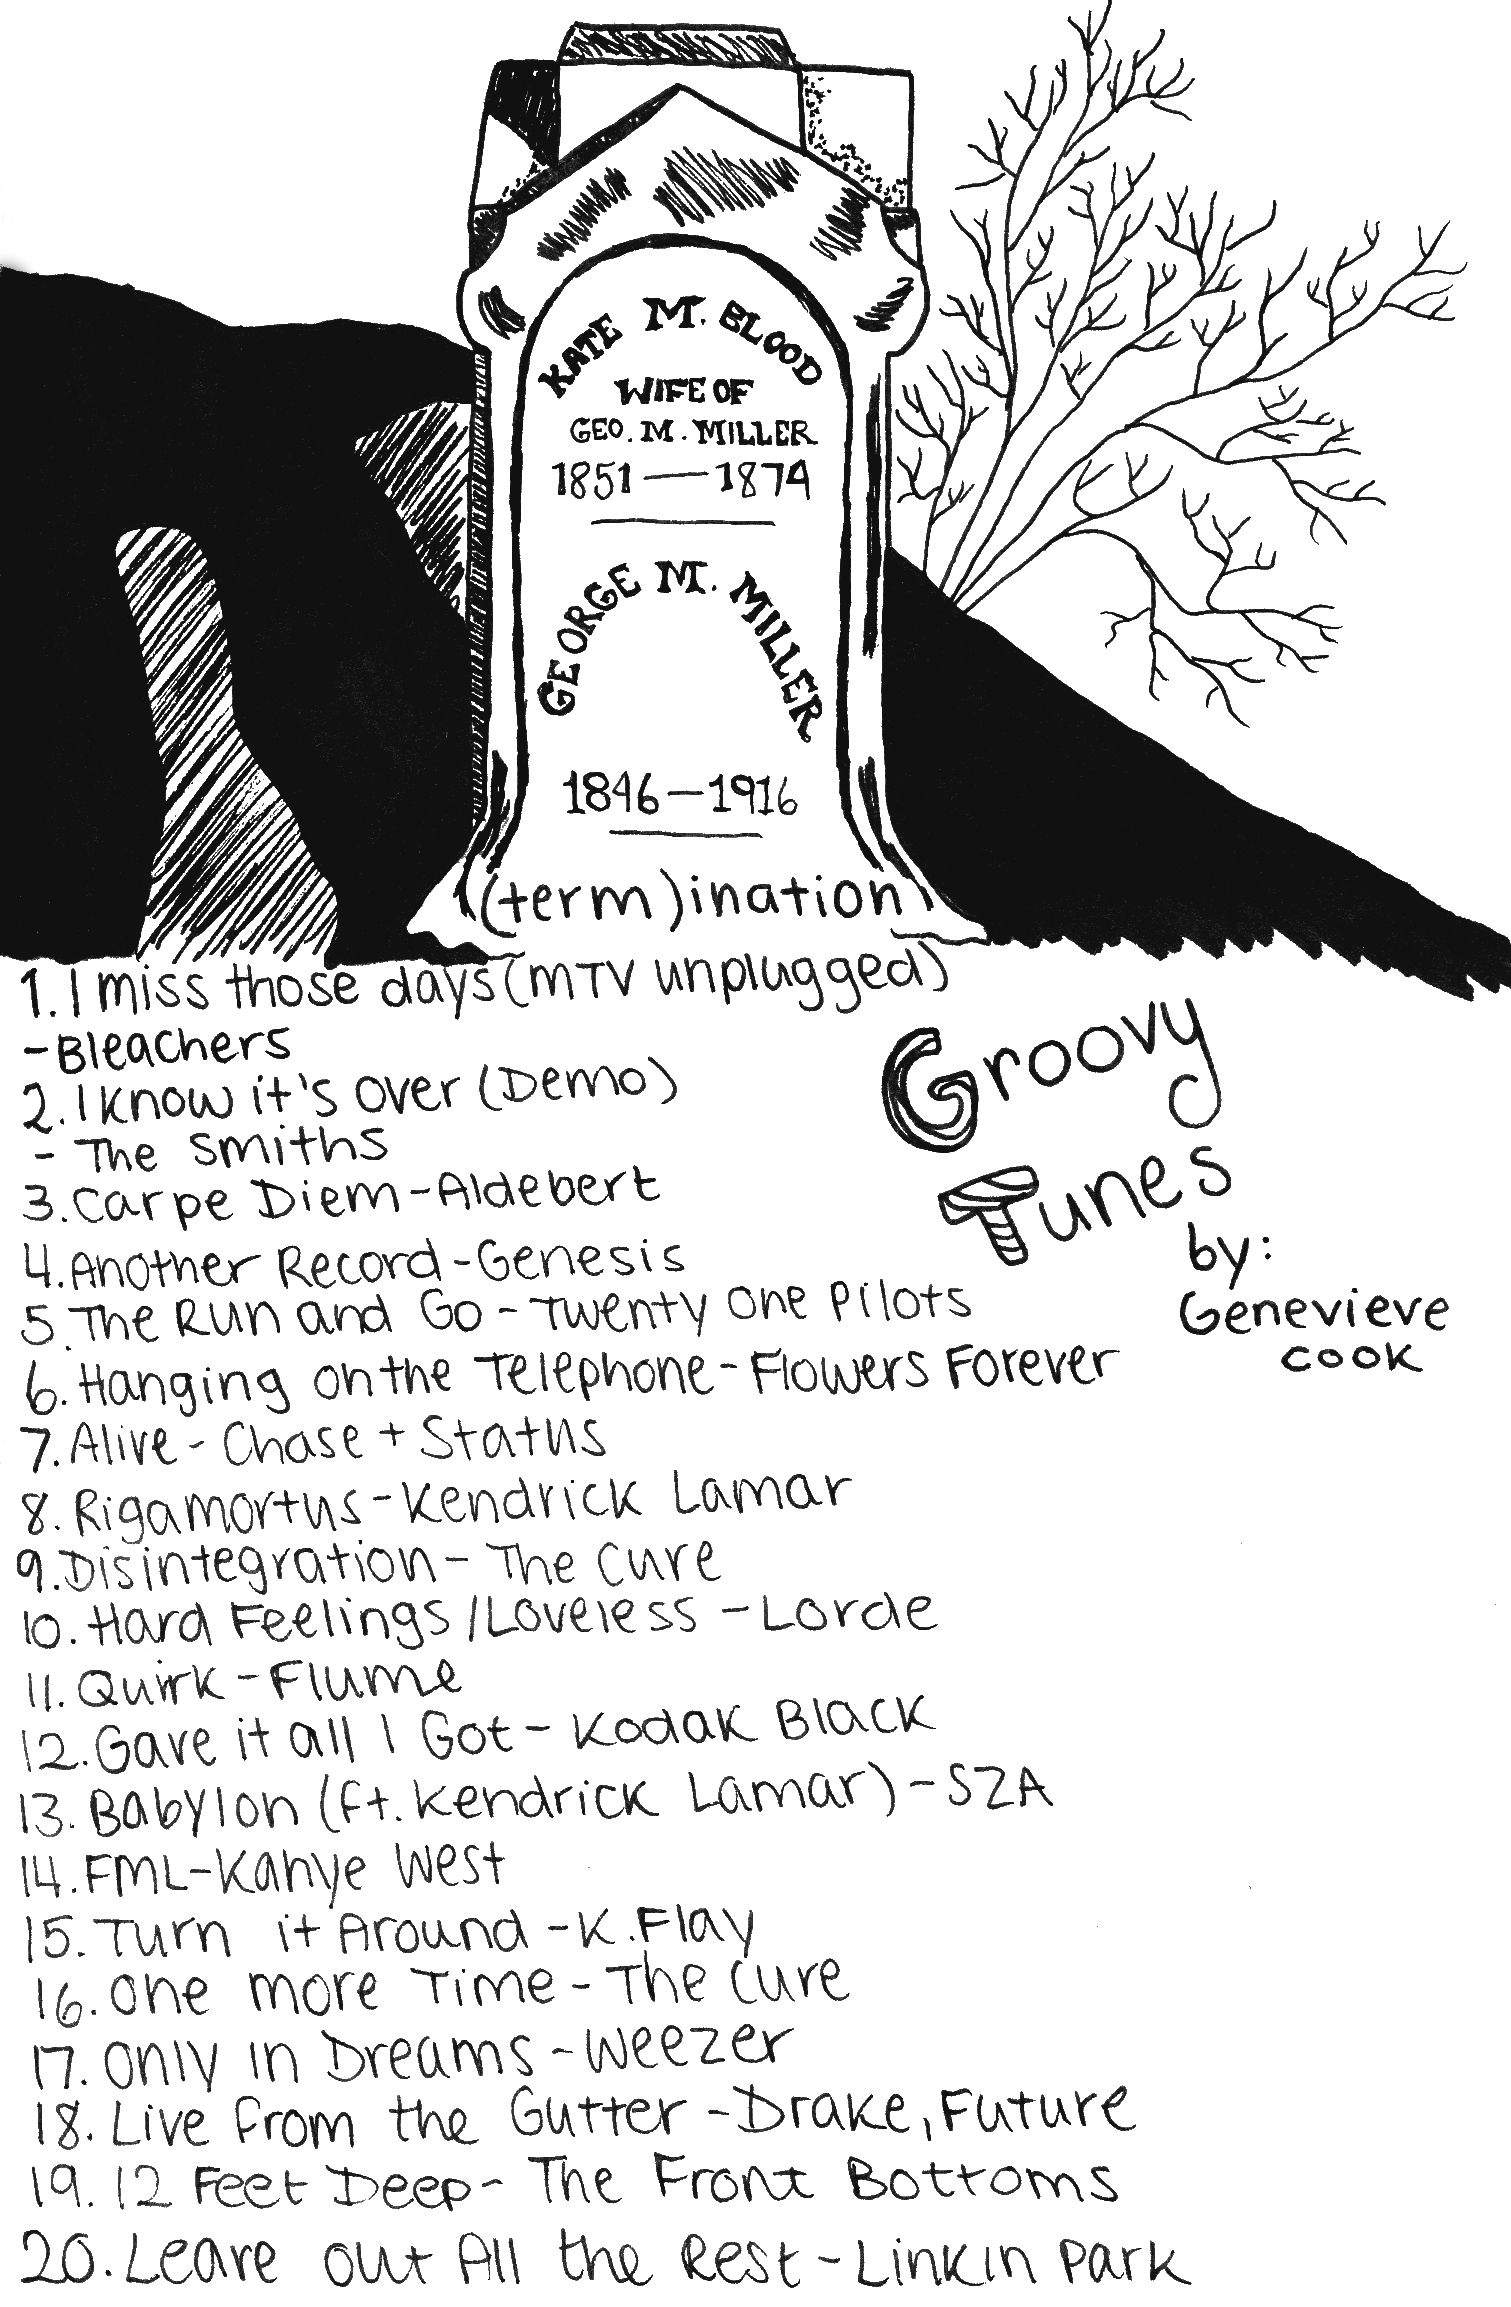 KATE M. BLOOD
WIFE OF
GEO. M. MILLER
1851 — 1874
GEORGE M. MILLER
1846 — 1916
(term)ination
1. I miss those days (MTV unplugged)
- Bleachers
2. I know it's over (Demo)
- The Smiths
3. Carpe Diem - Aldebert
4. Another Record - Genesis
5. The Run and Go - Twenty One Pilots
6. Hanging on the Telephone - Flowers Forever
7. Alive - Chase + Status
8. Rigamortus - Kendrick Lamar
9. Disintegration - The Cure
10. Hard Feelings / Loveless - Lorde
11. Quirk - Flume
12. Gave it all I Got - Kodak Black
13. Babylon (ft. Kendrick Lamar) - SZA
14. FML - Kanye West
15. Turn it Around - K.Flay
16. One more Time - The Cure
17. Only in Dreams - Weezer
18. Live from the Gutter - Drake, Future
19. 12 Feet Deep - The Front Bottoms
20. Leave out All the Rest - Linkin Park
Groovy
Tunes
by:
Genevieve
Cook